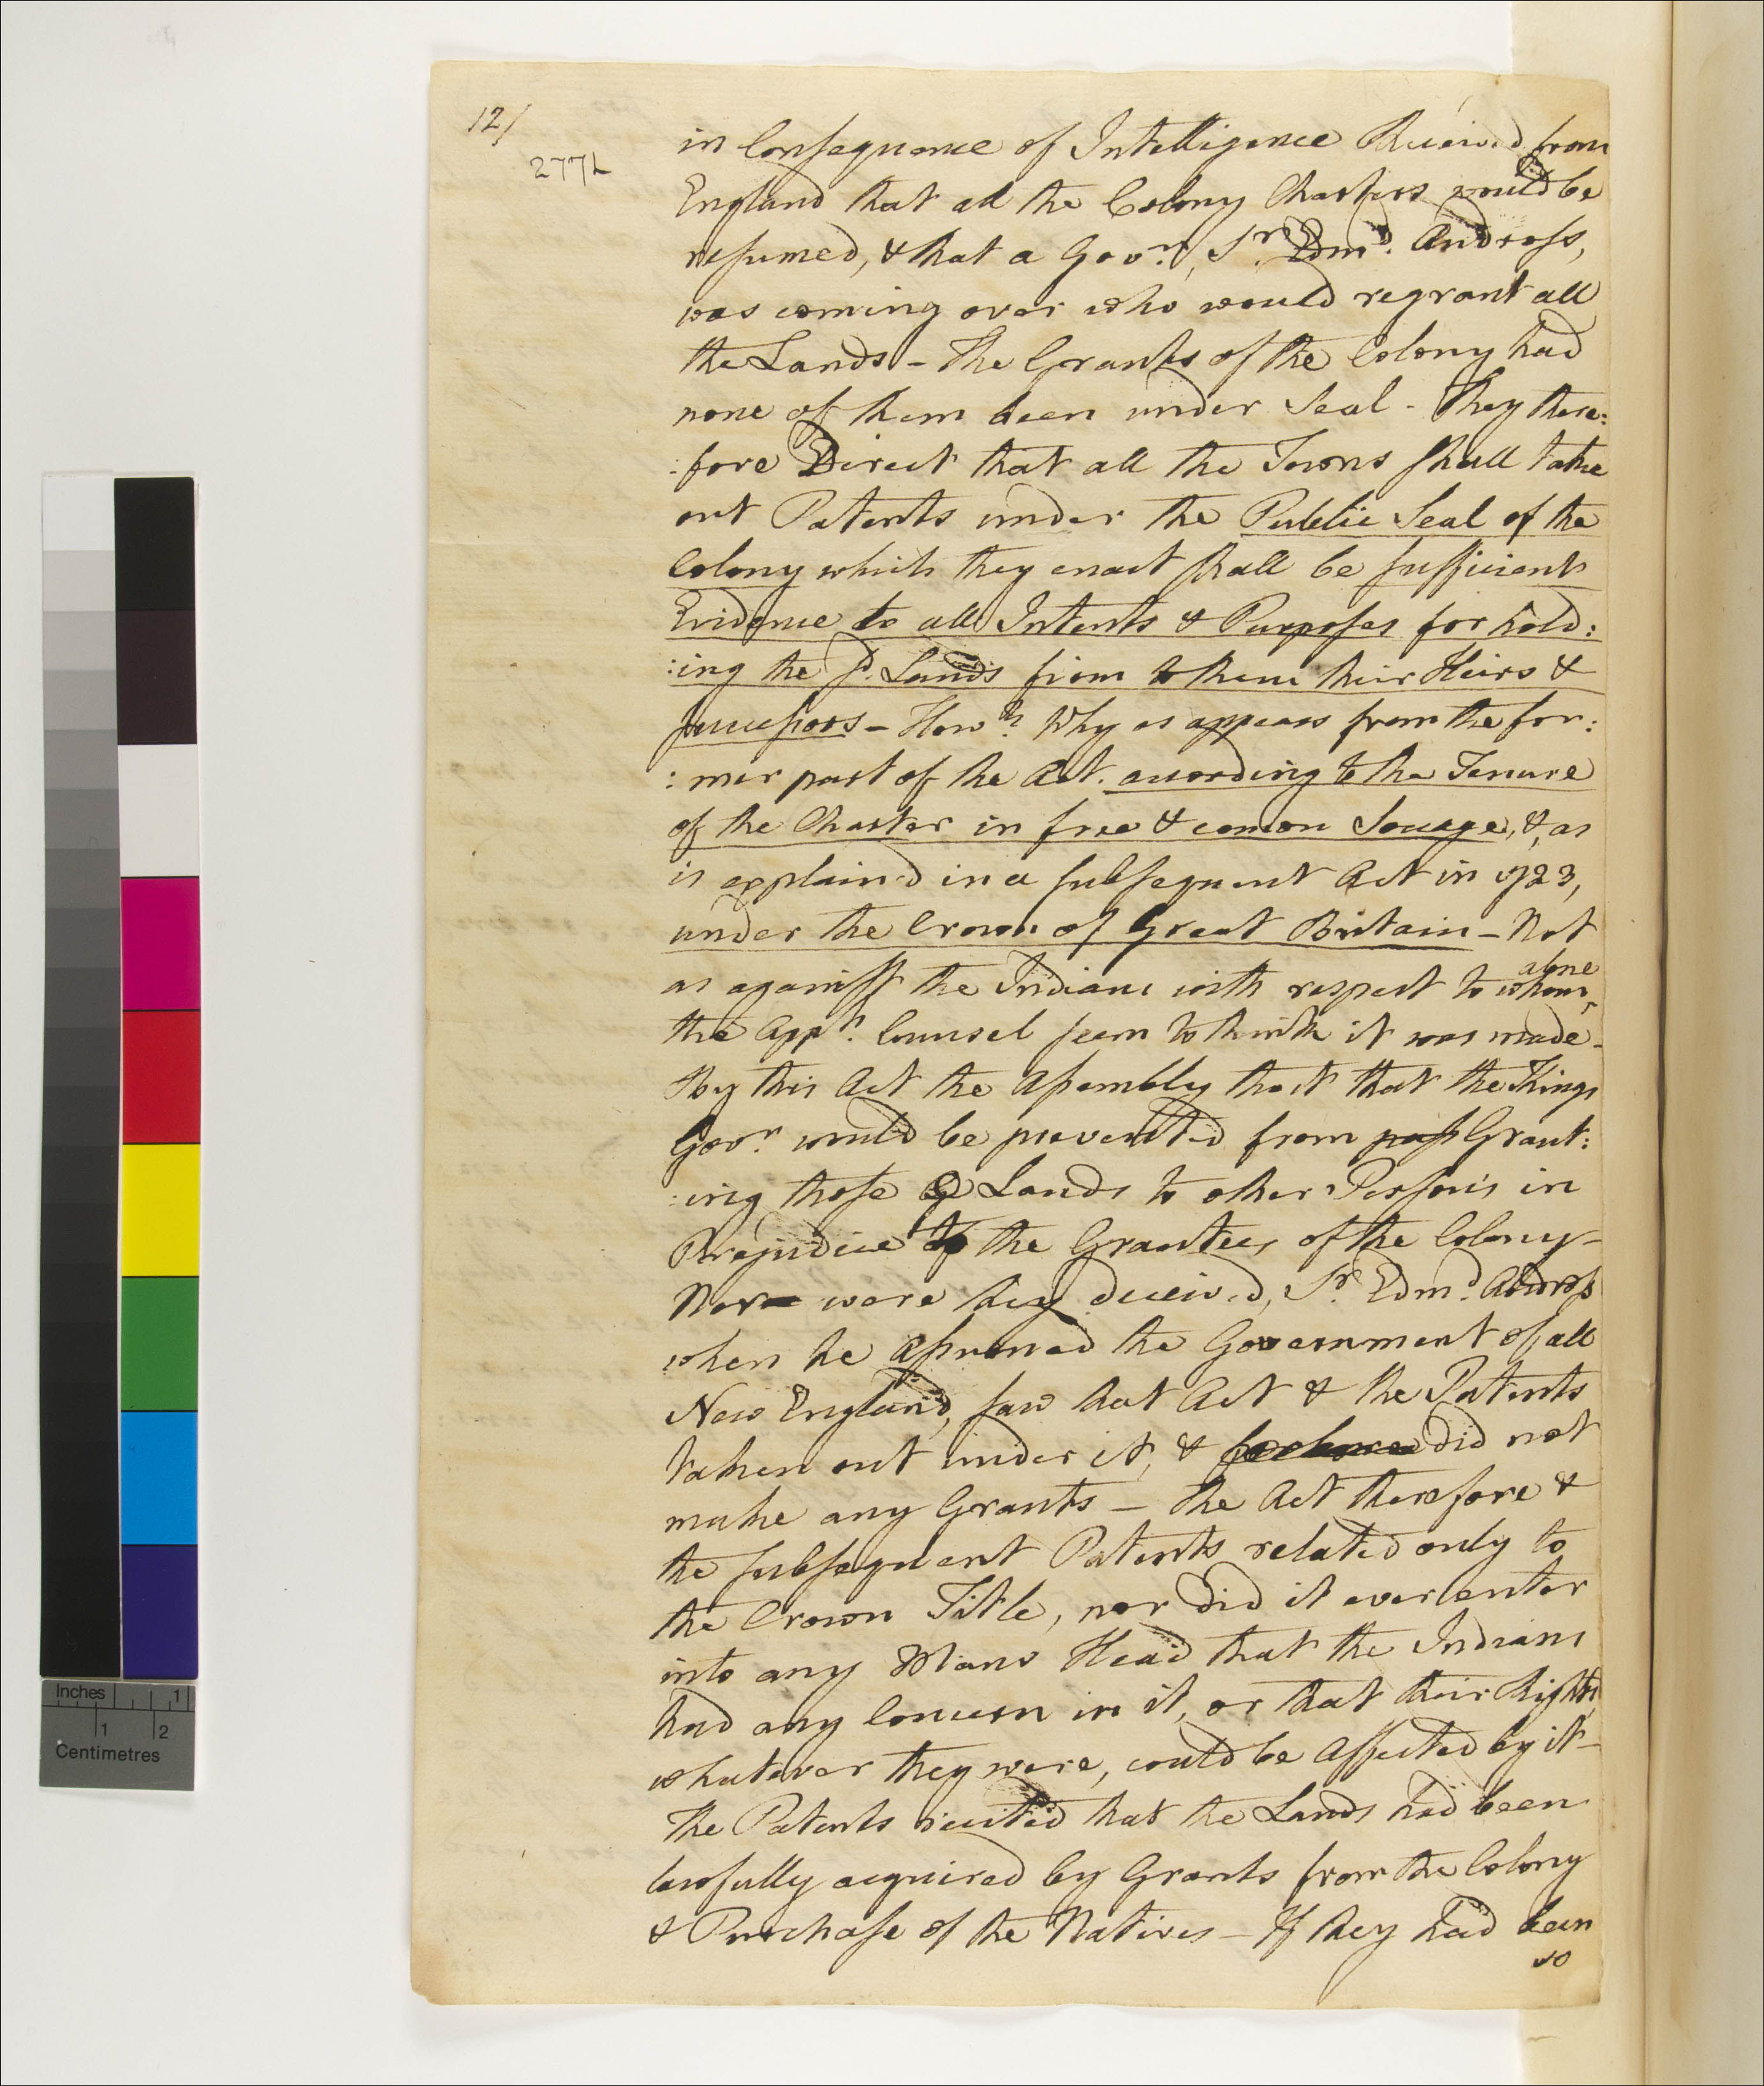 12/
277L
in Consequence of Intelligence Receiv'd from
England that all the Colony Charters would be
resumed, & that a Govr., Sr. Edmd. Andross,
was coming over who would regrant all
the Lands - The Grants of the Colony had
none of them been under Seal - They there:
:fore Direct that all the Towns shall take
out Patents under the Public Seal of the
Colony which they enact shall be sufficient
Evidence to all Intents & Purposes for hold:
:ing the sd. Lands firm to them their Heirs &
successors - How? Why as appears from the for:
:mer part of the Act. according to the Tenure
of the Charter in free & common Soccage, & as
is explain'd in a subsequent Act in 1723,
under the Crown of Great Britain - Not
as against the Indians with respect to whom alone
the Appts. Counsel seem to think it was made -
By this Act the Assembly thot that the Kings
Govr. would be prevented from pass Grant:
:ing those Lands to other Persons in
Prejudice to the Grantees of the Colony -
Nor were they deceiv'd, Sr. Edmd. Andross
when he assumed the Government of all
New England, saw that Act & the Patents
taken out under it, & did not
make any Grants - The Act therefore &
the subsequent Patents related only to
the Crown Title, nor did it ever enter
into any Mans Head that the Indians
had any Concern in it, or that their Rights,
whatever they were, could be affected by it -
The Patents recited that the Lands had been
lawfully acquired by Grants from the Colony
& Purchase of the Natives - If they had been
so
Inches 1
1 2
Centimetres